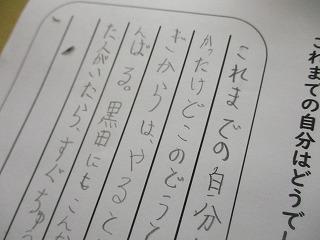 これまでの自分はどうでし
これまでの自分
かったけどこのどうて
ぎからは、やると
んばる。黒田にもこんな
た人がいたら、すぐちゅう